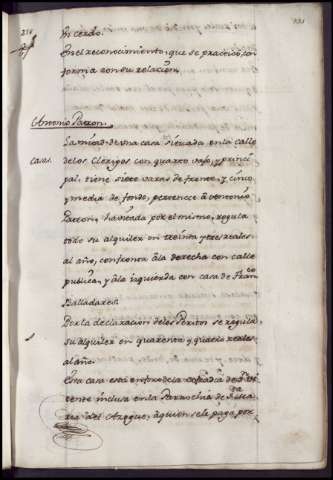 Un cerdo.
En el reconocimiento, que se practicó, con
forma con su relacion
Antonio Patron.
Casas.
La mitad de una casa situada en la calle
de los Clerigos con quarto vajo, y princi
pal, tiene siete varas de frente, y cinco
y media de fondo, pertenece à Antonio
Patron, havitada por el mismo, regula
todo su alquiler en treinta y tres reales
al año, confronta à la derecha con calle
publica, y à la izquierda con casa de Franco
Balladares.
Por la declaracion de los Peritos se regula
su alquiler en quarenta y quatro reales
al año.
Esta casa està
inclusa en la Parrochia de
del Azogue, à quien se le paga por